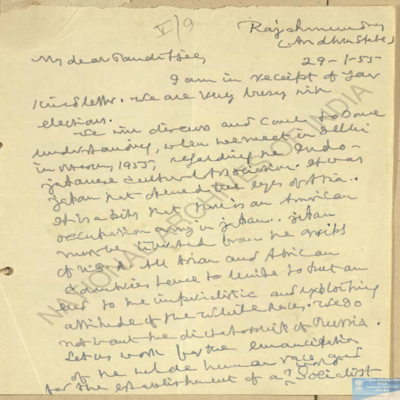 V/9
Rajahmundry
(Andhra State)
29-1-55-
My dear Panditjee,
I am in receipt of your
kind letter. We are very busy with
elections.
We will discuss and come to some
understanding, when we meet in Delhi
in March 1955, regarding the Indo-
Japanese Cultural Association. It was
Japan that opened the eyes of Asia..
It is a pity that there is an American
occupation army in Japan.. Japan
must be liberated from the grips
of U.S.A. All Asian and African
Countries have to unite to put an
end to the imperialistic and exploiting
attitude of the White races. We do
not want the dictatorship of Russia.
Let us work for the emancipation
of the whole human race and
for the establishment of a Socialist
NATIONAL ARCHIVES OF INDIA